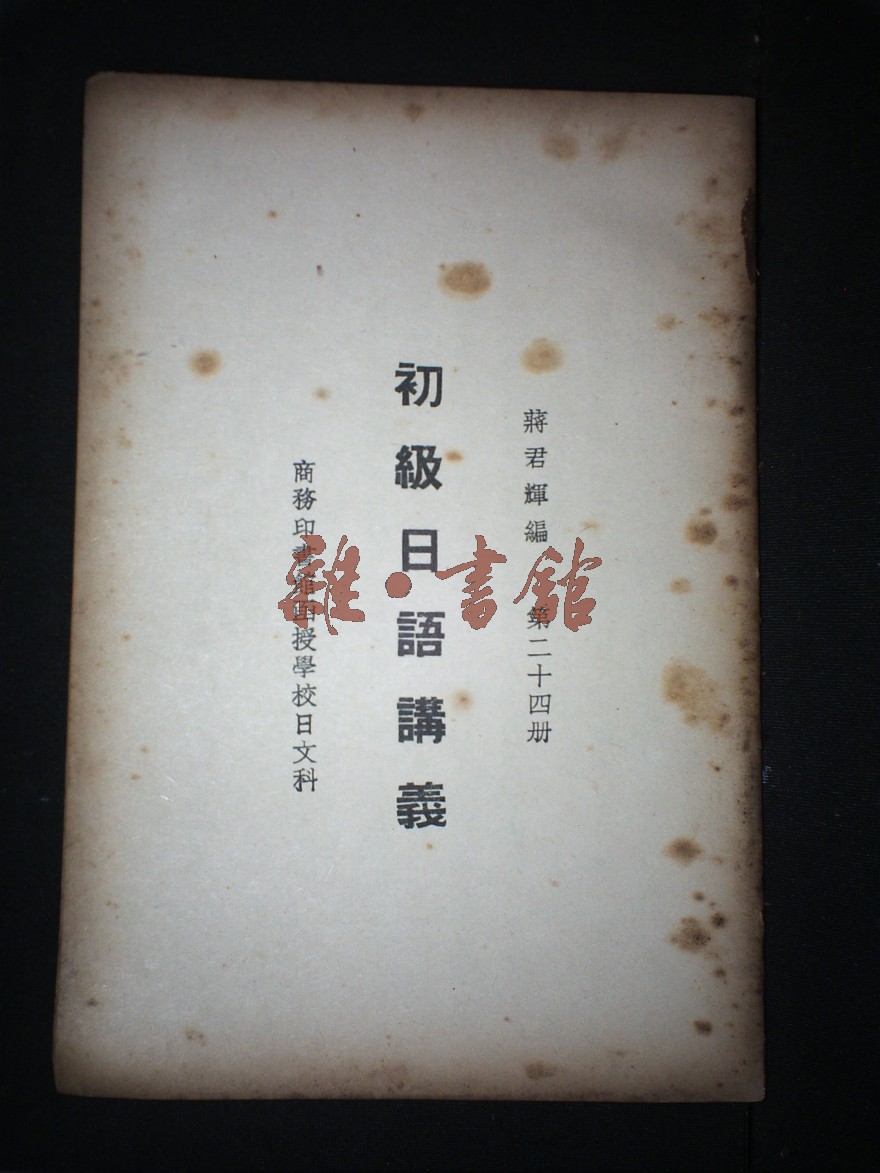 蔣君輝編　第二十四册
初級日語講義
商務印書館函授學校日文科
雜·書館